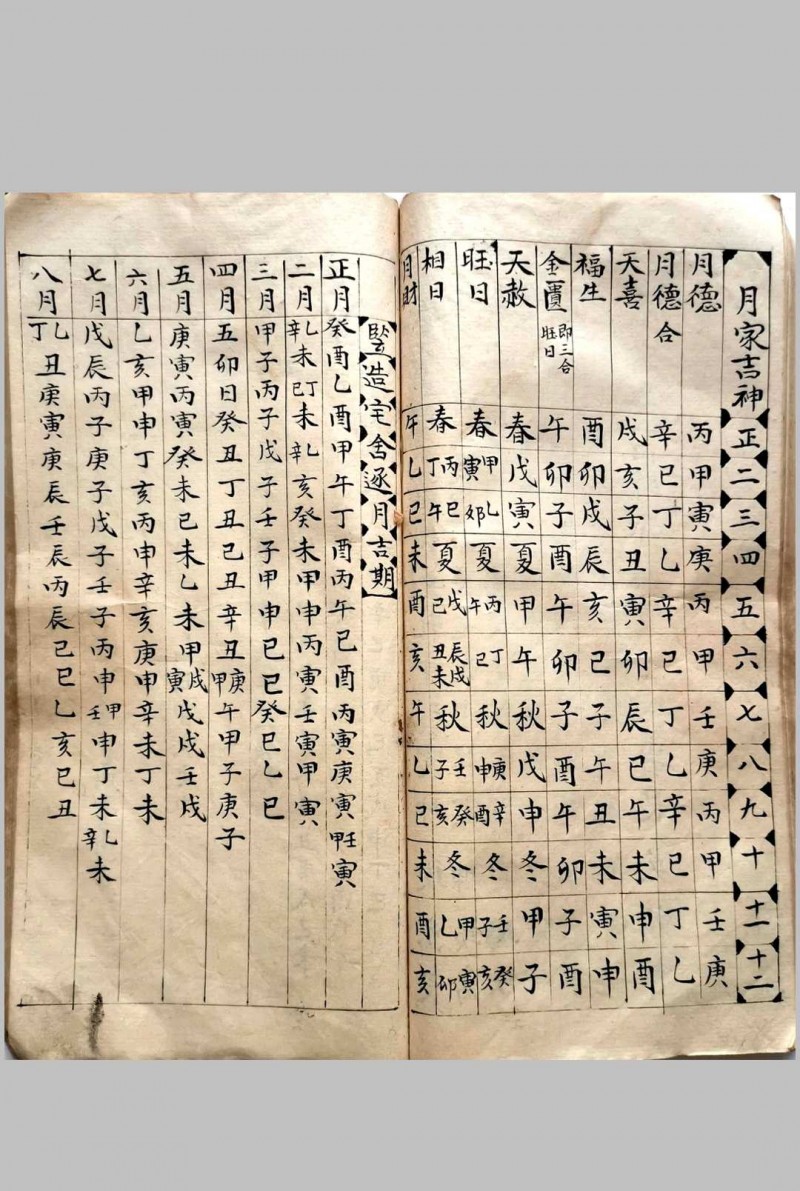 月家吉神 正 二 三 四 五 六 七 八 九 十 十一 十二
月德 丙 甲 寅 庚 丙 甲 壬 庚 丙 甲 壬 庚
月德合 辛 巳 丁 乙 辛 巳 丁 乙 辛 巳 丁 乙
天喜 戌 亥 子 丑 寅 卯 辰 巳 午 未 申 酉
福生 酉 卯 戌 辰 亥 巳 子 午 丑 未 寅 申
金匱 即三合旺日 午 卯 子 酉 午 卯 子 酉 午 卯 子 酉
天赦 春 戊 寅 夏 甲 午 秋 戊 申 冬 甲 子
旺日 春 甲寅 乙卯 夏 丙午 丁巳 秋 庚申 辛酉 冬 壬子 癸亥
相日 春 丙丁 巳午 夏 戊己 辰戌丑未 秋 壬子 癸亥 冬 甲乙 寅卯
月財 午 乙 巳 未 酉 亥 午 乙 巳 未 酉 亥
豎造宅舍逐月吉期
正月 癸酉乙酉甲午丁酉丙午巳酉丙寅庚寅甲壬寅
二月 乙辛未丁巳未乙辛亥癸未甲申丙寅壬寅甲寅
三月 甲子丙子戊子壬子甲申巳巳癸巳乙巳
四月 五卯日癸丑丁丑己丑辛丑庚甲午甲子庚子
五月 庚寅丙寅癸未巳未乙未甲戌寅戊戌壬戌
六月 乙亥甲申丁亥丙申辛亥庚申辛未丁未
七月 戊辰丙子庚子戊子壬子丙申甲壬申丁未乙辛未
八月 乙丁丑庚寅庚辰壬辰丙辰己巳乙亥巳丑